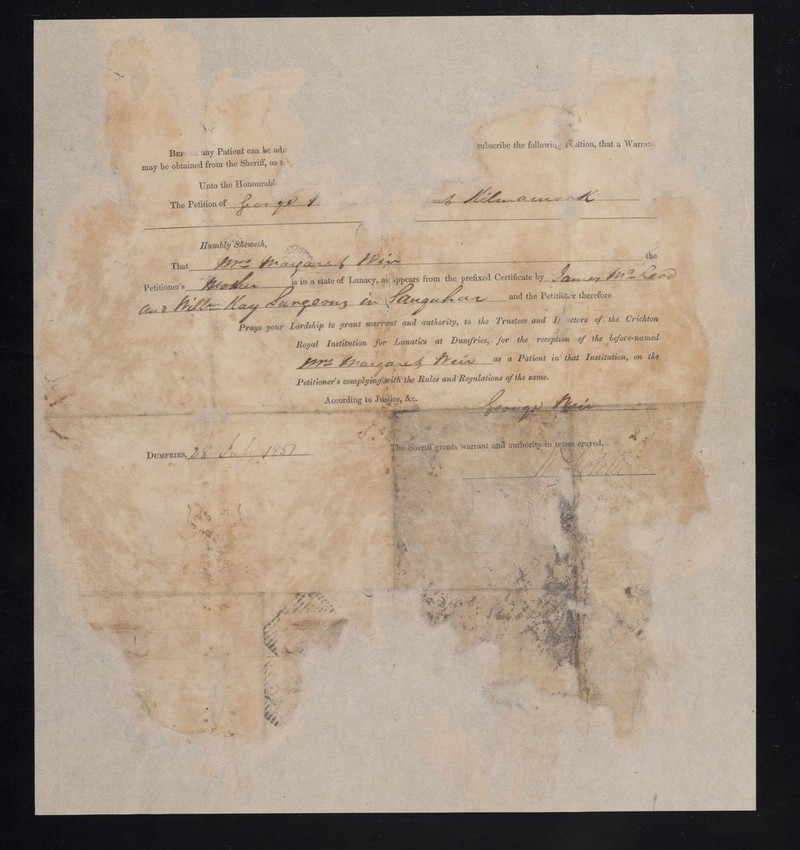 any Patient can be subscribe the following that a Warran
may be obtained from the Sheriff, as
Unto the Honourabl
The Petition of George Kilmarnock
Humbly Sheweth,
That Mrs Margaret Weir the
Petitioner's Mother is in a state of Lunacy, as appears from the prefixed Certificate by James McLeod
and Willm Kay Surgeons in Sanquhar and the Petitioner therefore
Prays your Lordship to grant warrant and authority, to the Trustees and Directors of the Crichton
Royal Institution for Lunatics at Dumfries, for the reception of the before-named
Mrs Margaret Weir as a Patient in that Institution, on the
Petitioner's complying with the Rules and Regulations of the same.
According to Justice, &c.
George Weir
DUMFRIES, 28 July 1851 The Sheriff grants warrant and authority in terms craved.